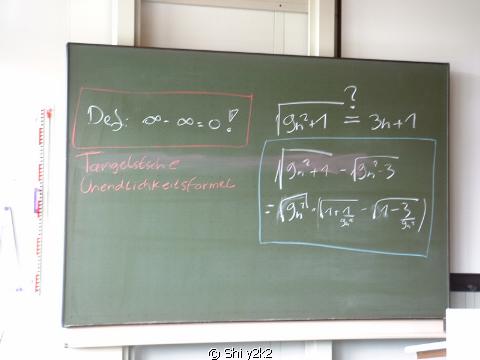 Def: ∞ - ∞ = 0 !
Tangelstsche
Unendlichkeitsformel
?
√(9n²+1) = 3n+1
√(9n²+1) - √(9n²-3)
= √(9n²) · (√(1+1/9n²) - √(1-3/9n²))
© Shiy2k2